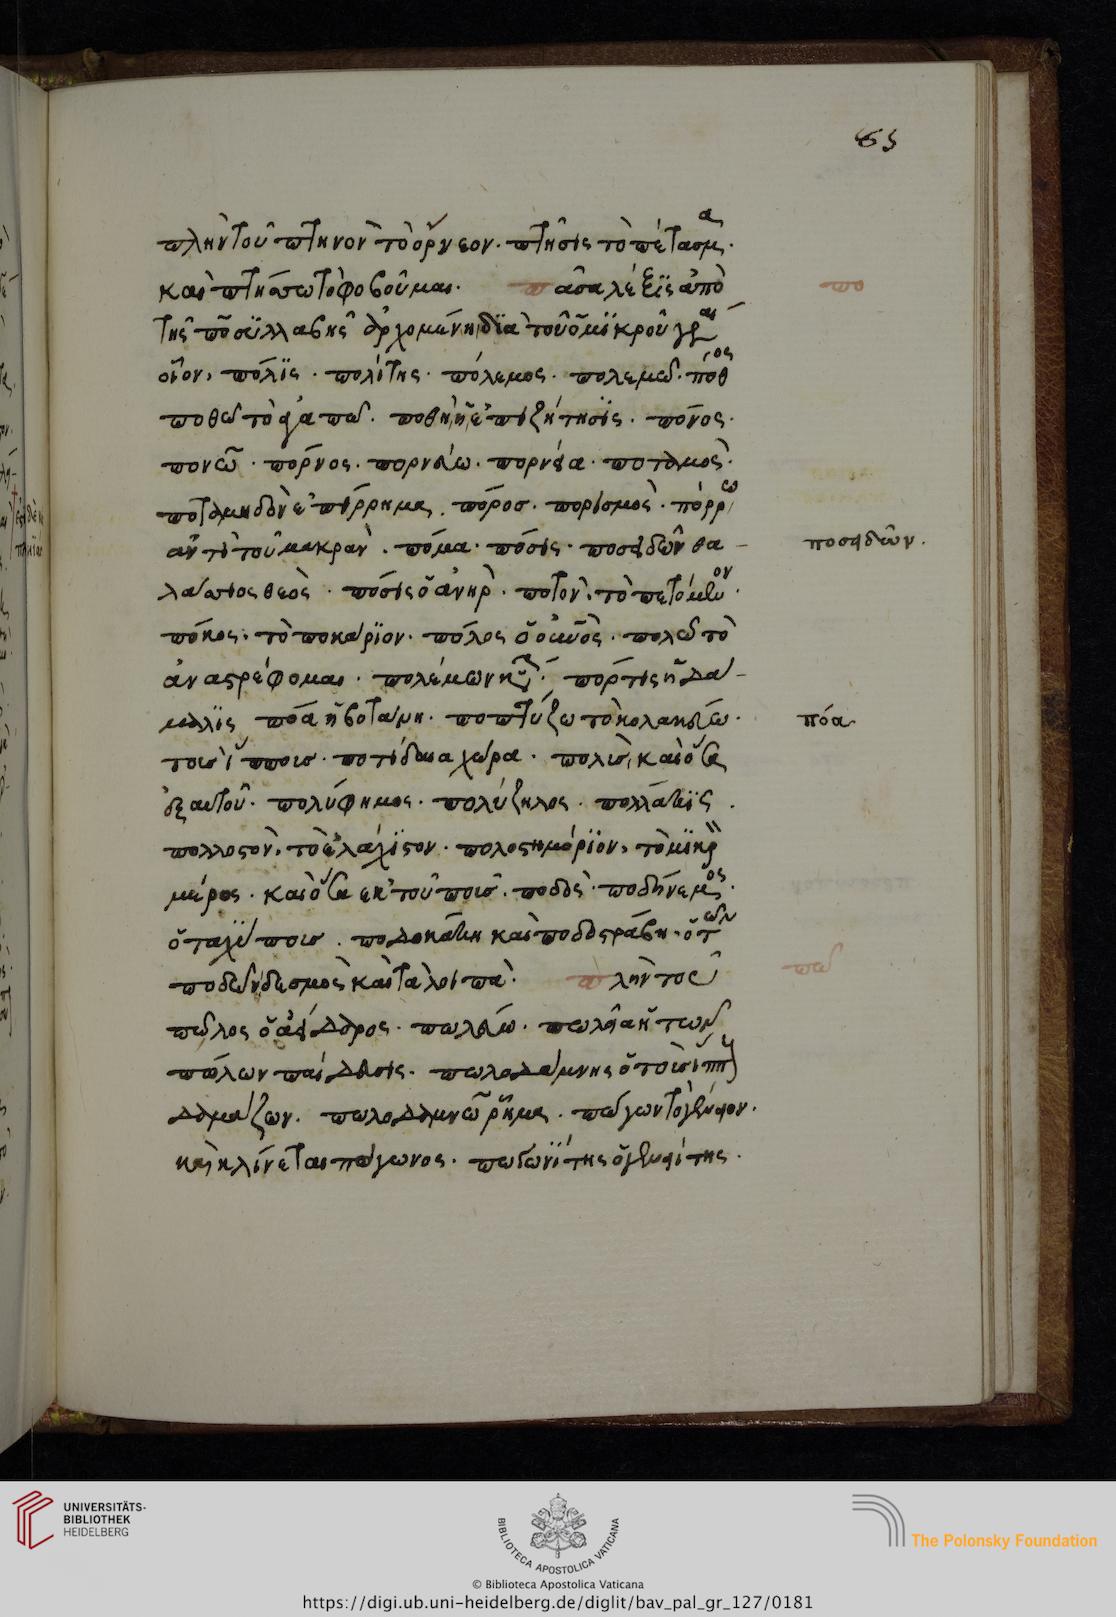 63
πλὴν τοῦ πτηνὸν τὸ ὄρνεον. πτῆσις τὸ πέτασμα.
καὶ πτήσσω τὸ φοβοῦμαι. πᾶσα λέξις ἀπὸ
πο
τῆς πο συλλαβῆς ἀρχομένη, διὰ τοῦ ὀμικροῦ γρ
οἷον, πόλις. πολίτης. πόλεμος. πολεμῶ. πόθος
ποθῶ τὸ ἀγαπῶ. ποθὴ, ἡ ἐπιζήτησις. πόνος.
πονῶ. πόρνος. πορνεύω. πορνεία. ποταμὸς.
ποταμηδὸν ἐπίρρημα. πόρος. πορισμὸς. πόρρω
ἀντὶ τοῦ μακρὰν. πόμα. πόσις. ποσειδῶν θα
ποσειδῶν.
λάσσιος θεὸς. πόσις ὁ ἀνὴρ. ποτὸν, τὸ πετόμενον.
πόκος. τὸ ποκάριον. πόλος ὁ οὐνὸς. πολῶ τὸ
ἀναστρέφομαι. πολέμων. πόρτις ἡ δά
μαλις πόα ἡ βοτάνη. ποππύζω τὸ κολακεύω.
πόα
τοὺς ἵππους. ποτίδαια χώρα. πολὺς, καὶ ὅσα
ἐξ αὐτοῦ. πολύφημος. πολύζηλος. πολλάκις.
πολλοστὸν, τὸ ἐλάχιστον. πολοστημόριον, τὸ μικρ
μέρος. καὶ ὅσα ἐκ τοῦ ποὺς. ποδὸς. ποδήνεμος.
ὁ ταχὺς πους. ποδοκάκη καὶ ποδοστράβη. ὁ τῶν
ποδῶν δεσμὸς καὶ τὰ λοιπὰ. πλὴν τοῦ
πω
πῶλος ὁ ἄγουρος. πωλεύω. πωλεία ἡ τῶν
πώλων παίδευσις. πωλοδάμνης ὁ τοὺς ἵππους
δαμάζων. πωλοδαμνῶ ῥῆμα. πώγων τὸ γένειον.
καὶ κλίνεται πώγωνος. πωγωνίτης
UNIVERSITÄTS-
BIBLIOTHEK
HEIDELBERG
BIBLIOTECA APOSTOLICA VATICANA
The Polonsky Foundation
© Biblioteca Apostolica Vaticana
https://digi.ub.uni-heidelberg.de/diglit/bav_pal_gr_127/0181